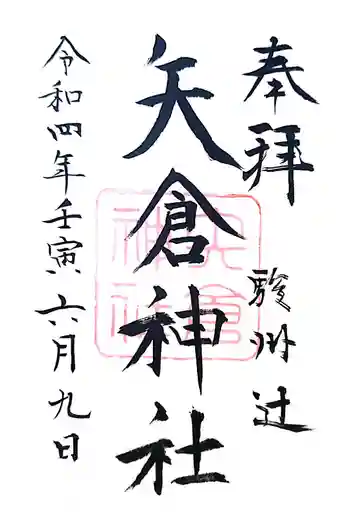 奉拝
駿州辻
矢倉神社
矢倉神社
令和四年壬寅六月九日